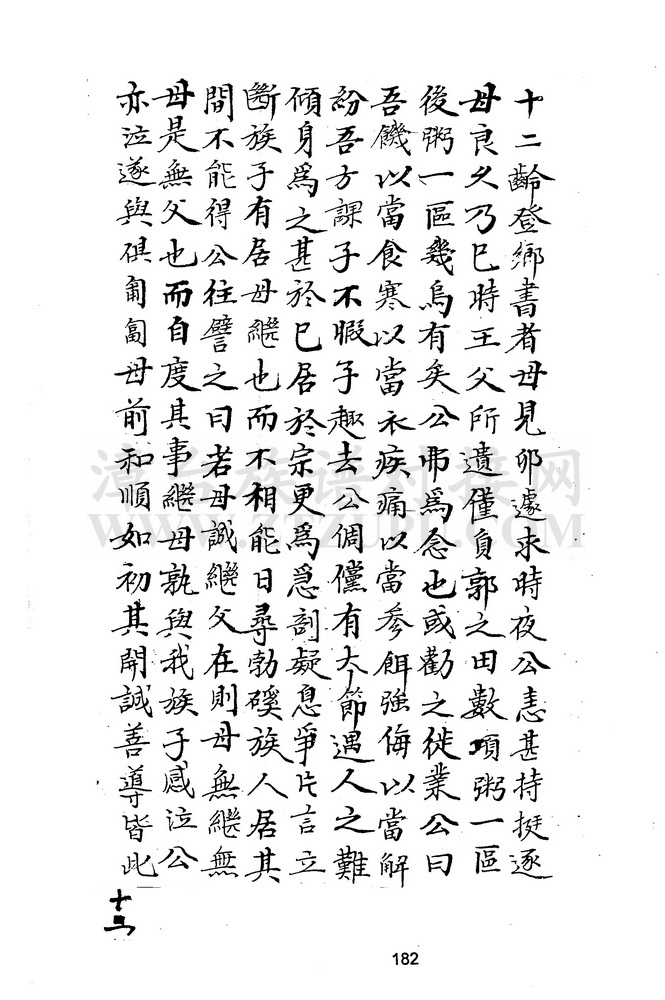 十二齡登鄉書者母見卵遽求時夜公恚甚持挺逐
母良久乃已時王父所遺僅負郭之田數項粥一區
後粥一區幾烏有矣公弗爲念也或勸之徙業公曰
吾饑以當食寒以當衣疾痛以當參餌強侮以當解
紛吾方課子不暇子趣去公倜儻有大節遇人之難
傾身爲之甚於已居於宗更爲急剖疑息爭片言立
斷族子有居母繼也而不相能日尋勃磎族人居其
間不能得公往譬之曰若母誠繼父在則母無繼無
母是無父也而自度其事繼母孰與我族子感泣公
亦泣遂與俱匍匐母前和順如初其開誠善導皆此
十三
182
漳台族谱对接网
WWW.ZTZUPU.COM